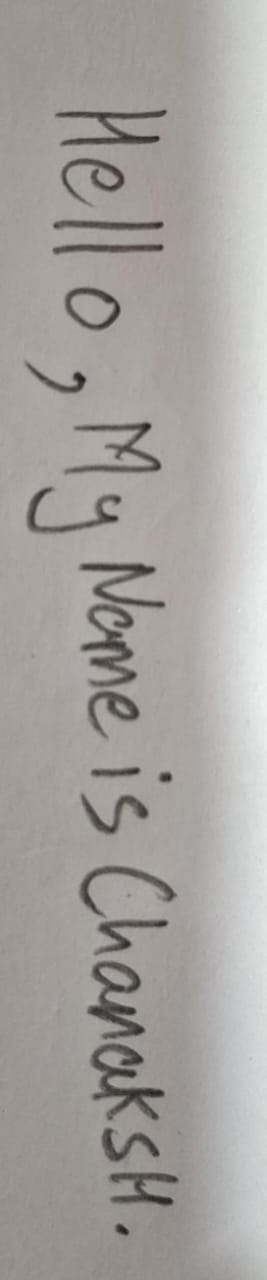 Hello, My Name is ChanaksH.